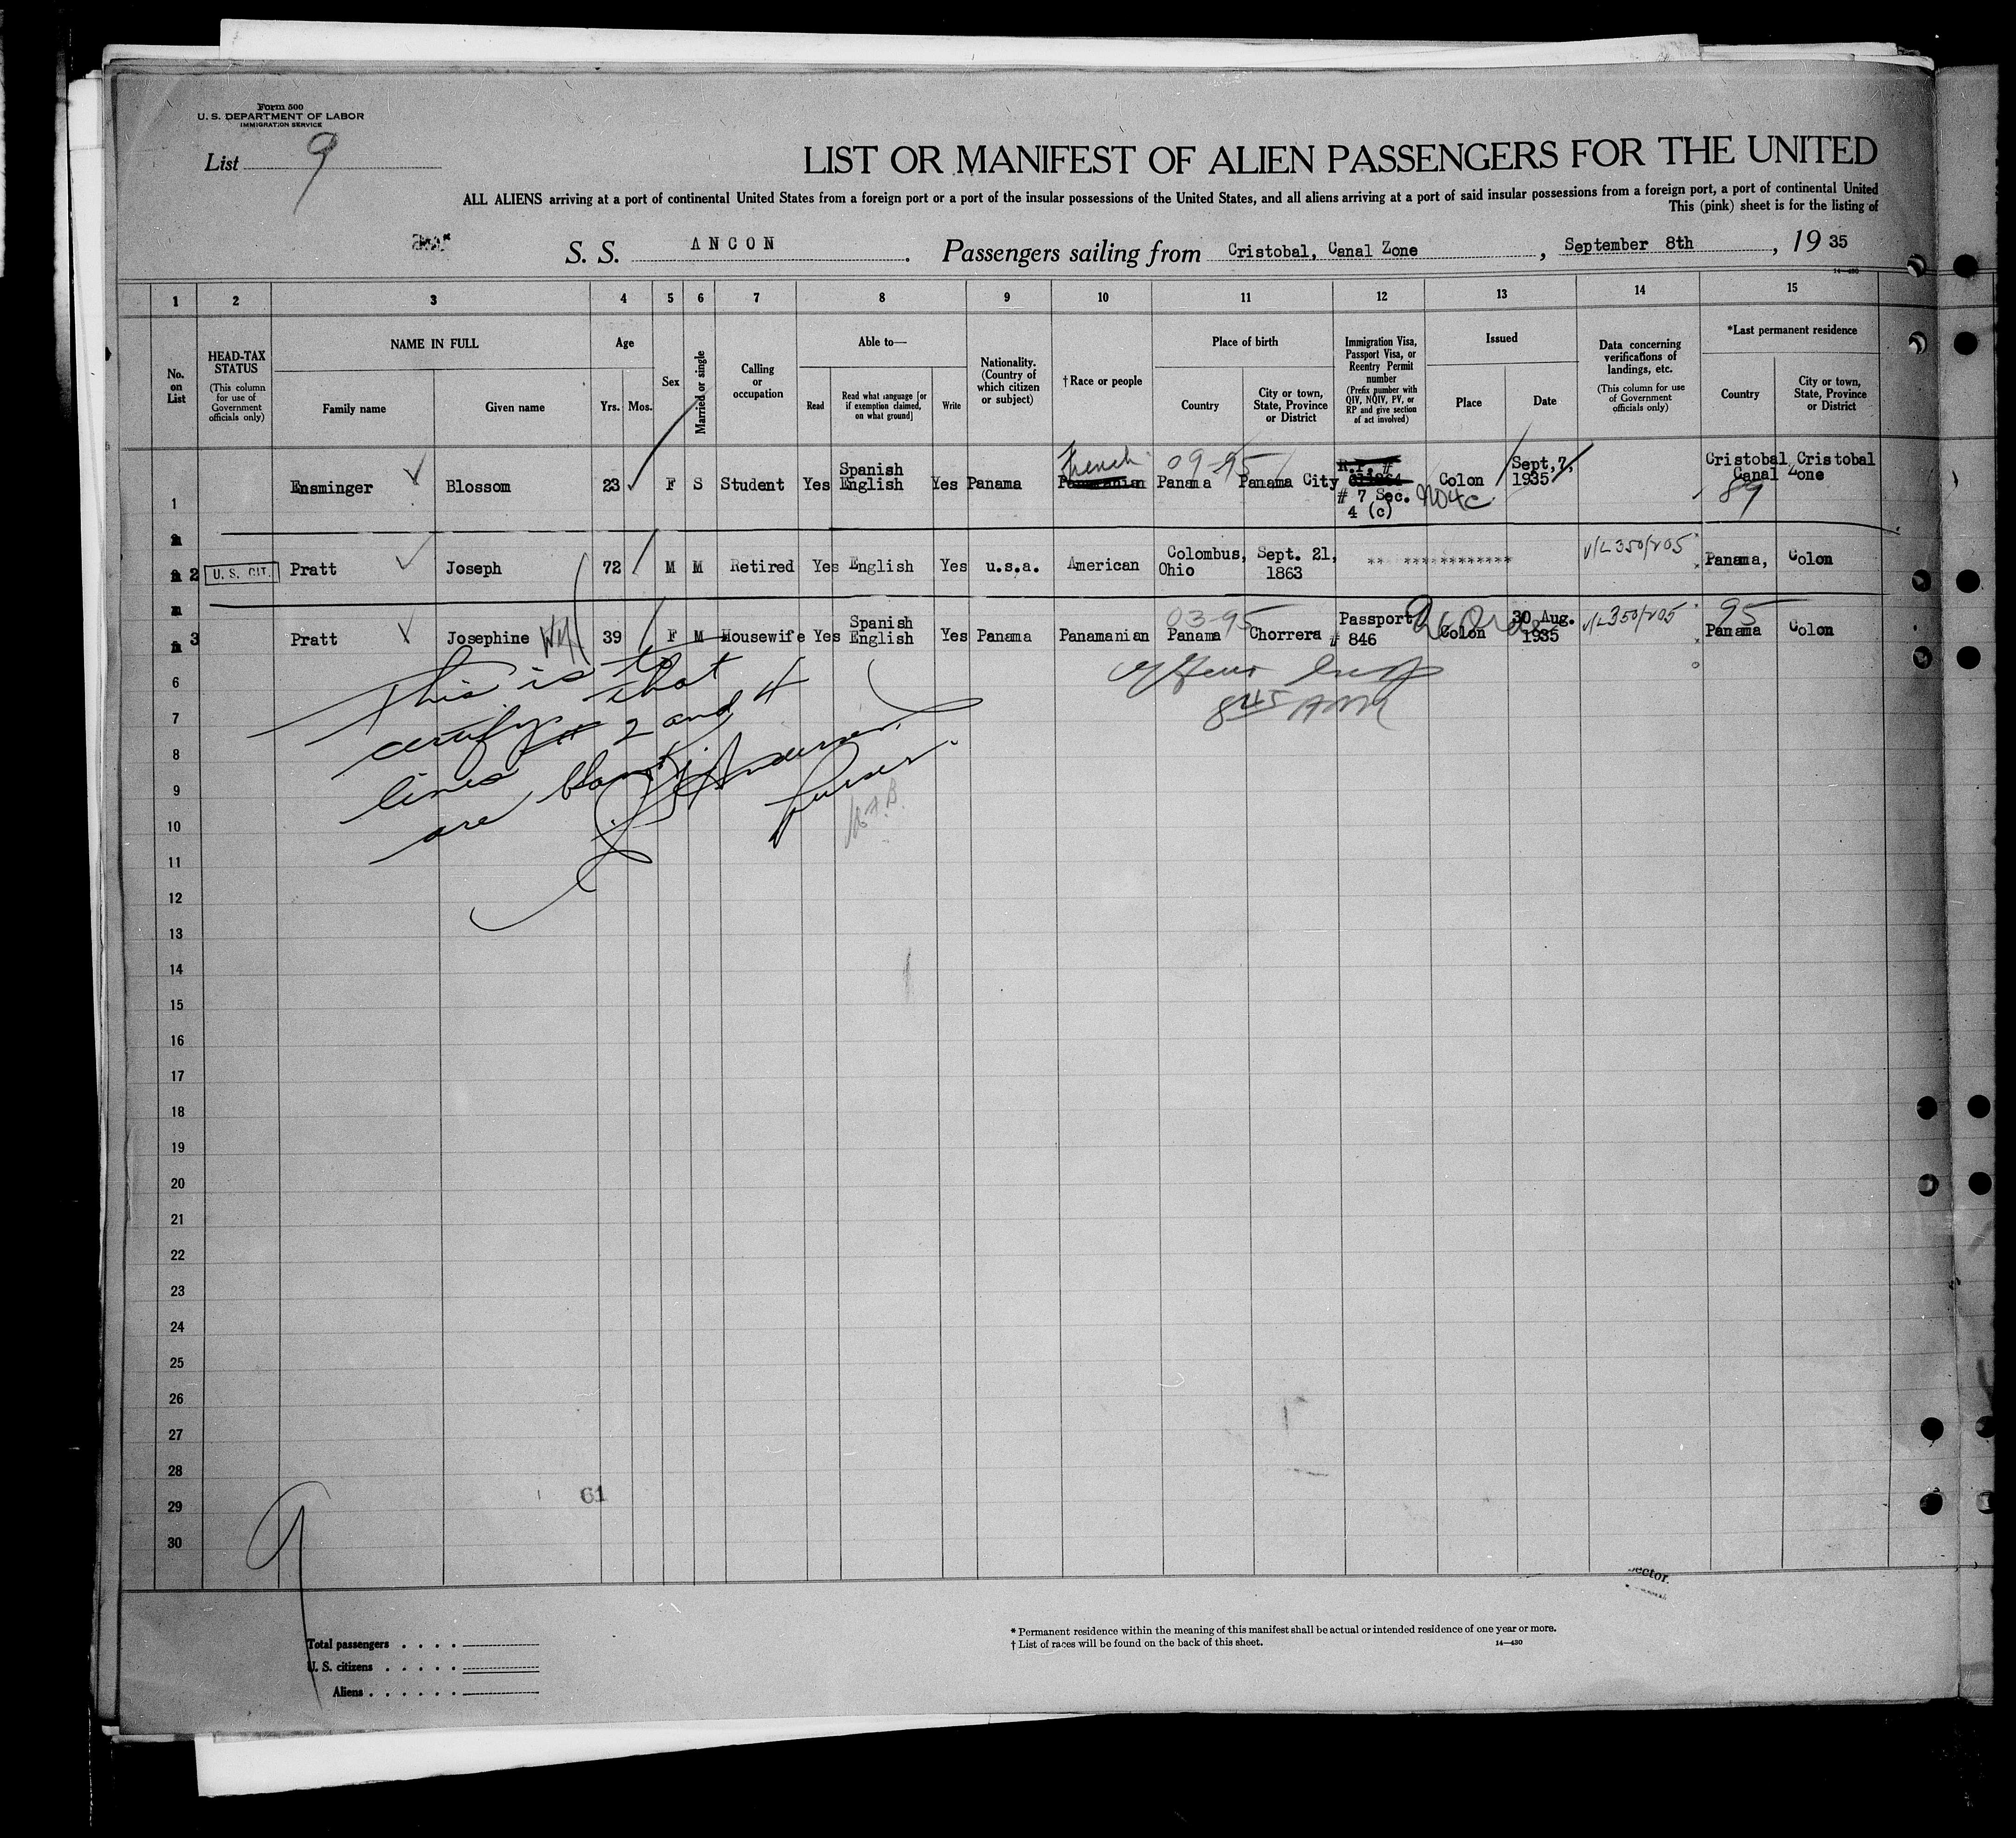 Form 500
U. S. DEPARTMENT OF LABOR
IMMIGRATION SERVICE
List 9
LIST OR MANIFEST OF ALIEN PASSENGERS FOR THE UNITED
ALL ALIENS arriving at a port of continental United States from a foreign port or a port of the insular possessions of the United States, and all aliens arriving at a port of said insular possessions from a foreign port, a port of continental United
This (pink) sheet is for the listing of
S. S. ANCON . Passengers sailing from Cristobal, Canal Zone , September 8th , 19 35
14—430
1 2 3 4 5 6 7 8 9 10 11 12 13 14 15
No. on List
HEAD-TAX STATUS (This column for use of Government officials only)
NAME IN FULL
Family name Given name
Age
Yrs. Mos.
Sex
Married or single
Calling or occupation
Able to—
Read Read what language [or if exemption claimed, on what ground] Write
Nationality. (Country of which citizen or subject)
†Race or people
Place of birth
Country City or town, State, Province or District
Immigration Visa, Passport Visa, or Reentry Permit number (Prefix number with QIV, NQIV, PV, or RP and give section of act involved)
Issued
Place Date
Data concerning verifications of landings, etc. (This column for use of Government officials only)
*Last permanent residence
Country City or town, State, Province or District
1 Ensminger Blossom 23 F S Student Yes Spanish English Yes Panama French Panamanian 09-95 Panama Panama City R.P. # # 7 Sec. 4 (c) NO4C Colon Sept,7, 1935 Cristobal Canal Zone 89 Cristobal
2 U. S. CIT. Pratt Joseph 72 M M Retired Yes English Yes u.s.a. American Colombus, Ohio Sept. 21, 1863 ** ************ V/L 350/205 Panama, Colon
3 Pratt Josephine 39 F M Housewife Yes Spanish English Yes Panama Panamanian 03-95 Panama Chorrera Passport # 846 Colon 30 Aug. 1935 V/L 350/205 95 Panama Colon
This is to
certify that
lines # 2 and 4
are blank.
Anderson,
Purser
8 45 AM
6
7
8
9
10
11
12
13
14
15
16
17
18
19
20
21
22
23
24
25
26
27
28
29
30
61
9
Total passengers . . . .
U. S. citizens . . . . .
Aliens . . . . . .
* Permanent residence within the meaning of this manifest shall be actual or intended residence of one year or more.
† List of races will be found on the back of this sheet.
14—430